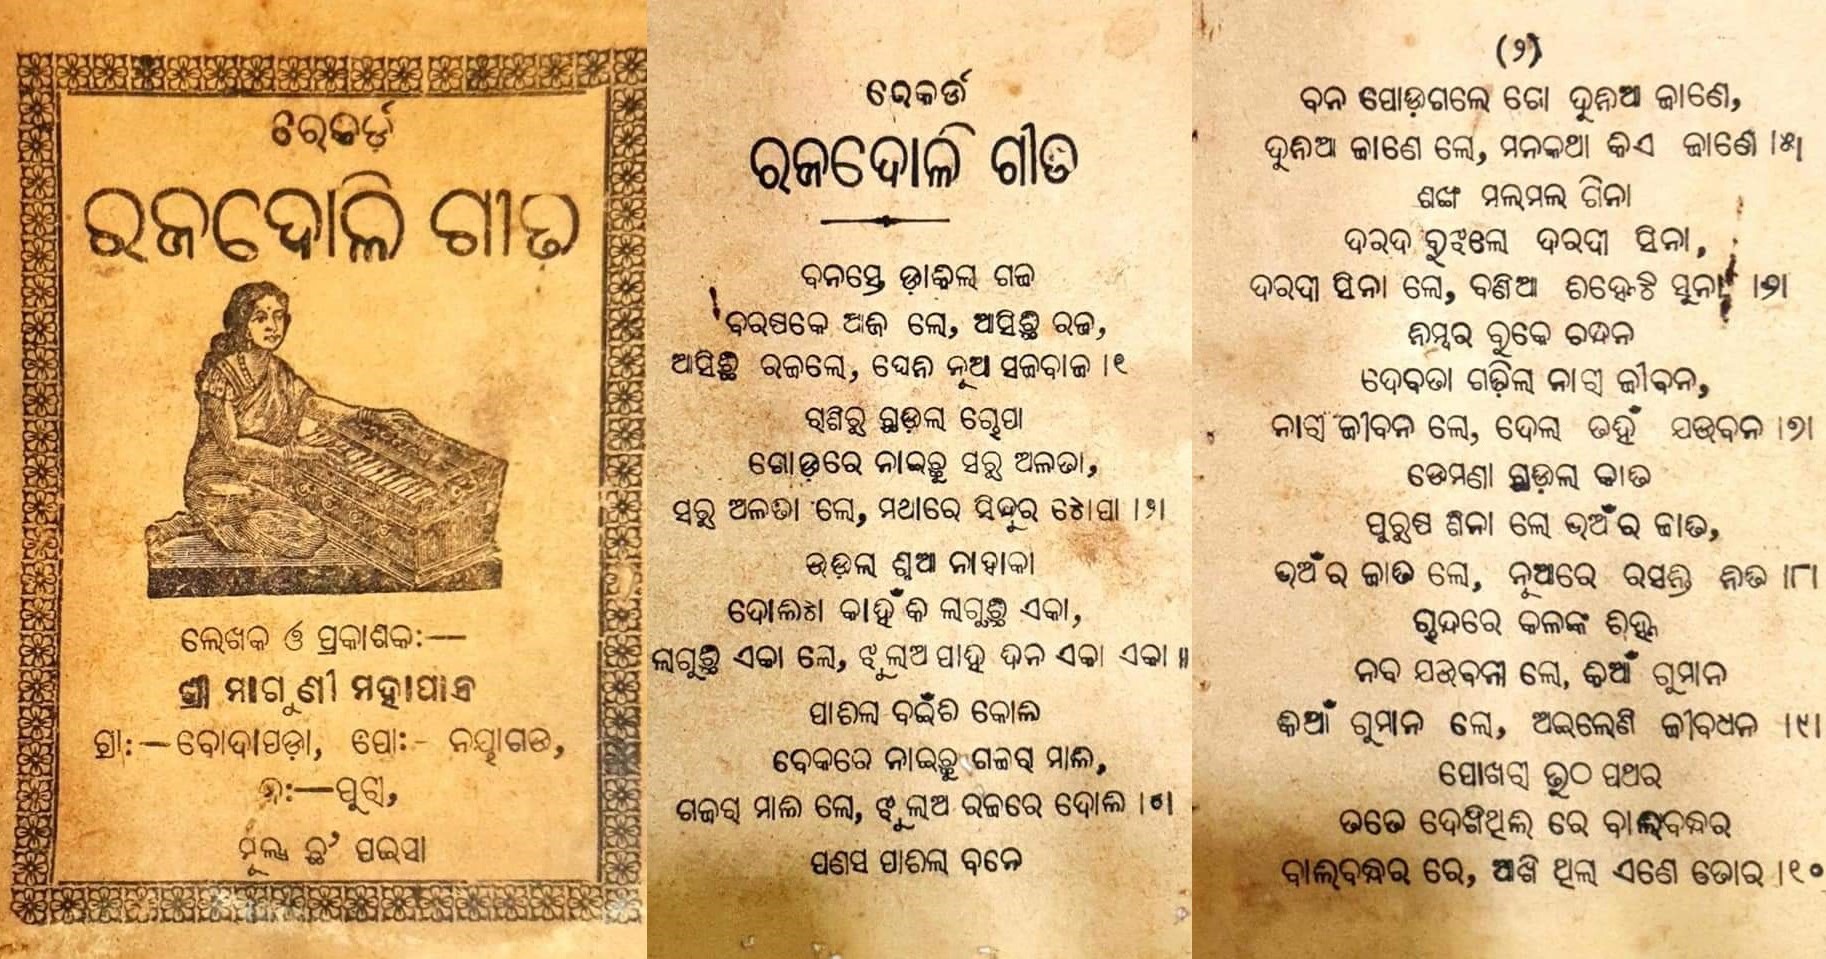 ରେକର୍ଡ଼
ରଜଦୋଳି ଗୀତ
ଲେଖକ ଓ ପ୍ରକାଶକ:—
ଶ୍ରୀ ମାଗୁଣୀ ମହାପାତ୍ର
ଗ୍ରା:— ବୋଦାପଡ଼ା, ପୋ:- ନୟାଗଡ,
ଜି:—ପୁରୀ,
ମୂଲ୍ୟ ଛ' ପଇସା
ରେକର୍ଡ
ରଜଦୋଳି ଗୀତ
ବନସ୍ତେ ଡ଼ାକିଲା ଗଜ
ବରଷକେ ଆଜ ଲୋ, ଆସିଛି ରଜ,
ଆସିଛି ରଜଲୋ, ଘେନି ନୂଆ ସଜବାଜ ।୧
ରାଶିରୁ ଛାଡ଼ିଲା ଚୋପା
ଗୋଡ଼ରେ ନାଇଛୁ ସରୁ ଅଳତା,
ସରୁ ଅଳତା ଲୋ, ମଥାରେ ସିନ୍ଦୁର ଟୋପା ।୨।
ଉଡ଼ିଲା ଶୁଆ ନାହାକା
ଦୋଳିଟା କାହିଁକି ଲାଗୁଛି ଏକା,
ଲାଗୁଛି ଏକା ଲୋ, ଝୁଲାଅ ପାହି ଦିନ ଏକା ଏକା ॥
ପାଚିଲା ବଇଁଚି କୋଳି
ବେକରେ ନାଇଛୁ ଗଜରା ମାଳି,
ଗଜରା ମାଳି ଲୋ, ଝୁଲାଅ ରଜରେ ଦୋଳି ।୪।
ପଣସ ପାଚିଲା ବନେ
(୨)
ବନ ପୋଡ଼ିଗଲେ ଗୋ ଦୁନିଆ ଜାଣେ,
ଦୁନିଆ ଜାଣେ ଲୋ, ମନକଥା କିଏ ଜାଣେ ।୫।
ଶଙ୍ଖ ମଲମଲ ଗିନା
ଦରଦ ବୁଝିଲେ ଦରଦୀ ସିନା,
ଦରଦୀ ସିନା ଲୋ, ବଣିଆ ଚିହ୍ନେଟି ସୁନା ।୬।
ନିମ୍ବର ବୁକେ ଚନ୍ଦନ
ଦେବତା ଗଢ଼ିଲା ନାରୀ ଜୀବନ,
ନାରୀ ଜୀବନ ଲୋ, ଦେଲା ତହିଁ ଯଉବନ ।୭।
ଡେମଣା ଛାଡ଼ିଲା କାତି
ପୁରୁଷ ଶିନା ଲୋ ଭଅଁର ଜାତି,
ଭଅଁର ଜାତି ଲୋ, ନୂଆରେ ରସନ୍ତି ନିତି ।୮।
ଚାନ୍ଦରେ କଳଙ୍କ ଚିହ୍ନ
ନବ ଯଉବନୀ ଲୋ, କିଆଁ ଗୁମାନ
କିଆଁ ଗୁମାନ ଲୋ, ଅଇଲେଣି ଜୀବଧନ ।୯।
ପୋଖରୀ ତୁଠ ପଥର
ତତେ ଦେଖିଥିଲି ରେ ବାଲିବନ୍ଧର
ବାଲିବନ୍ଧର ରେ, ଆଖି ଥିଲା ଏଣେ ତୋର ।୧୦